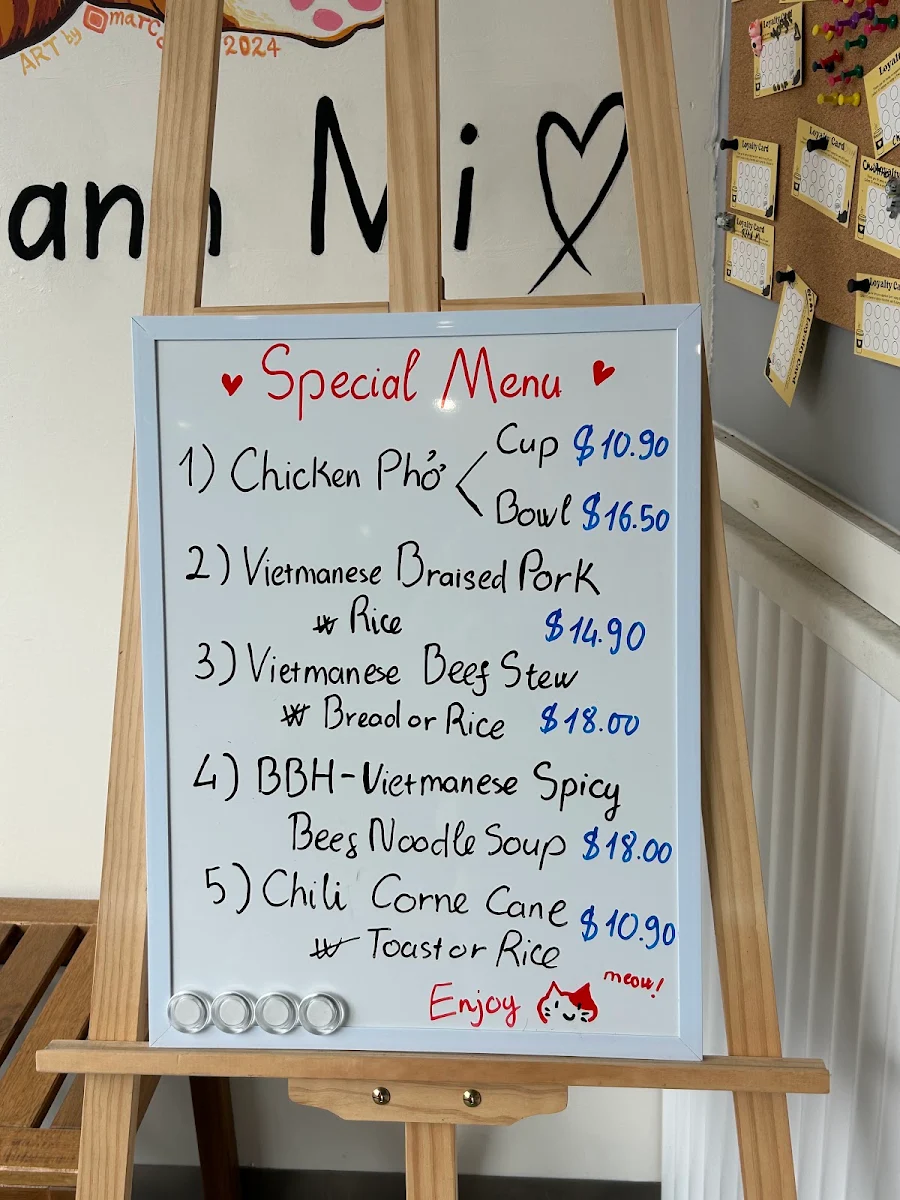 ART by marc 2024
anh Mi
♥ Special Menu ♥
1) Chicken Phở
Cup $10.90
Bowl $16.50
2) Vietmanese Braised Pork
w Rice $14.90
3) Vietmanese Beef Stew
w Bread or Rice $18.00
4) BBH-Vietmanese Spicy
Beef Noodle Soup $18.00
5) Chili Corne Cane
w Toast or Rice $10.90
Enjoy meow!
Loyalty Card
Loyalty Card
Loyalty Card
Loyalty Card
Loyalty Card